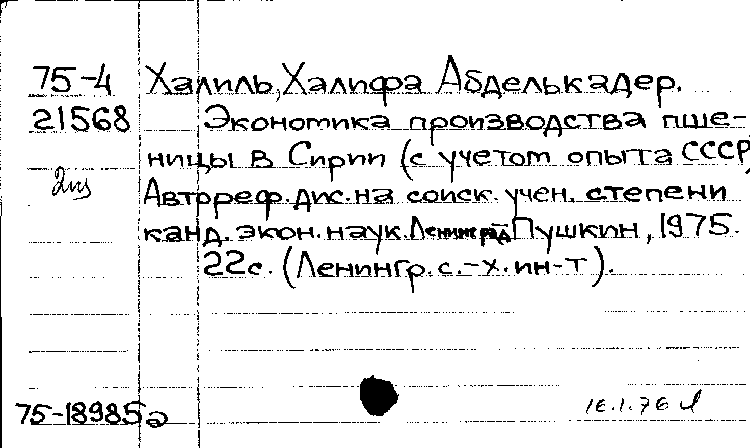 75-4 Халиль, Халифа Абделькадер.
21568 Экономика производства пше-
ницы в Сирии (с учетом опыта СССР)
дис Автореф. дис. на соиск. учен. степени
канд. экон. наук. Ленинград Пушкин, 1975.
22с. (Ленингр. с.-х. ин-т).
75-18985а
16.1.76